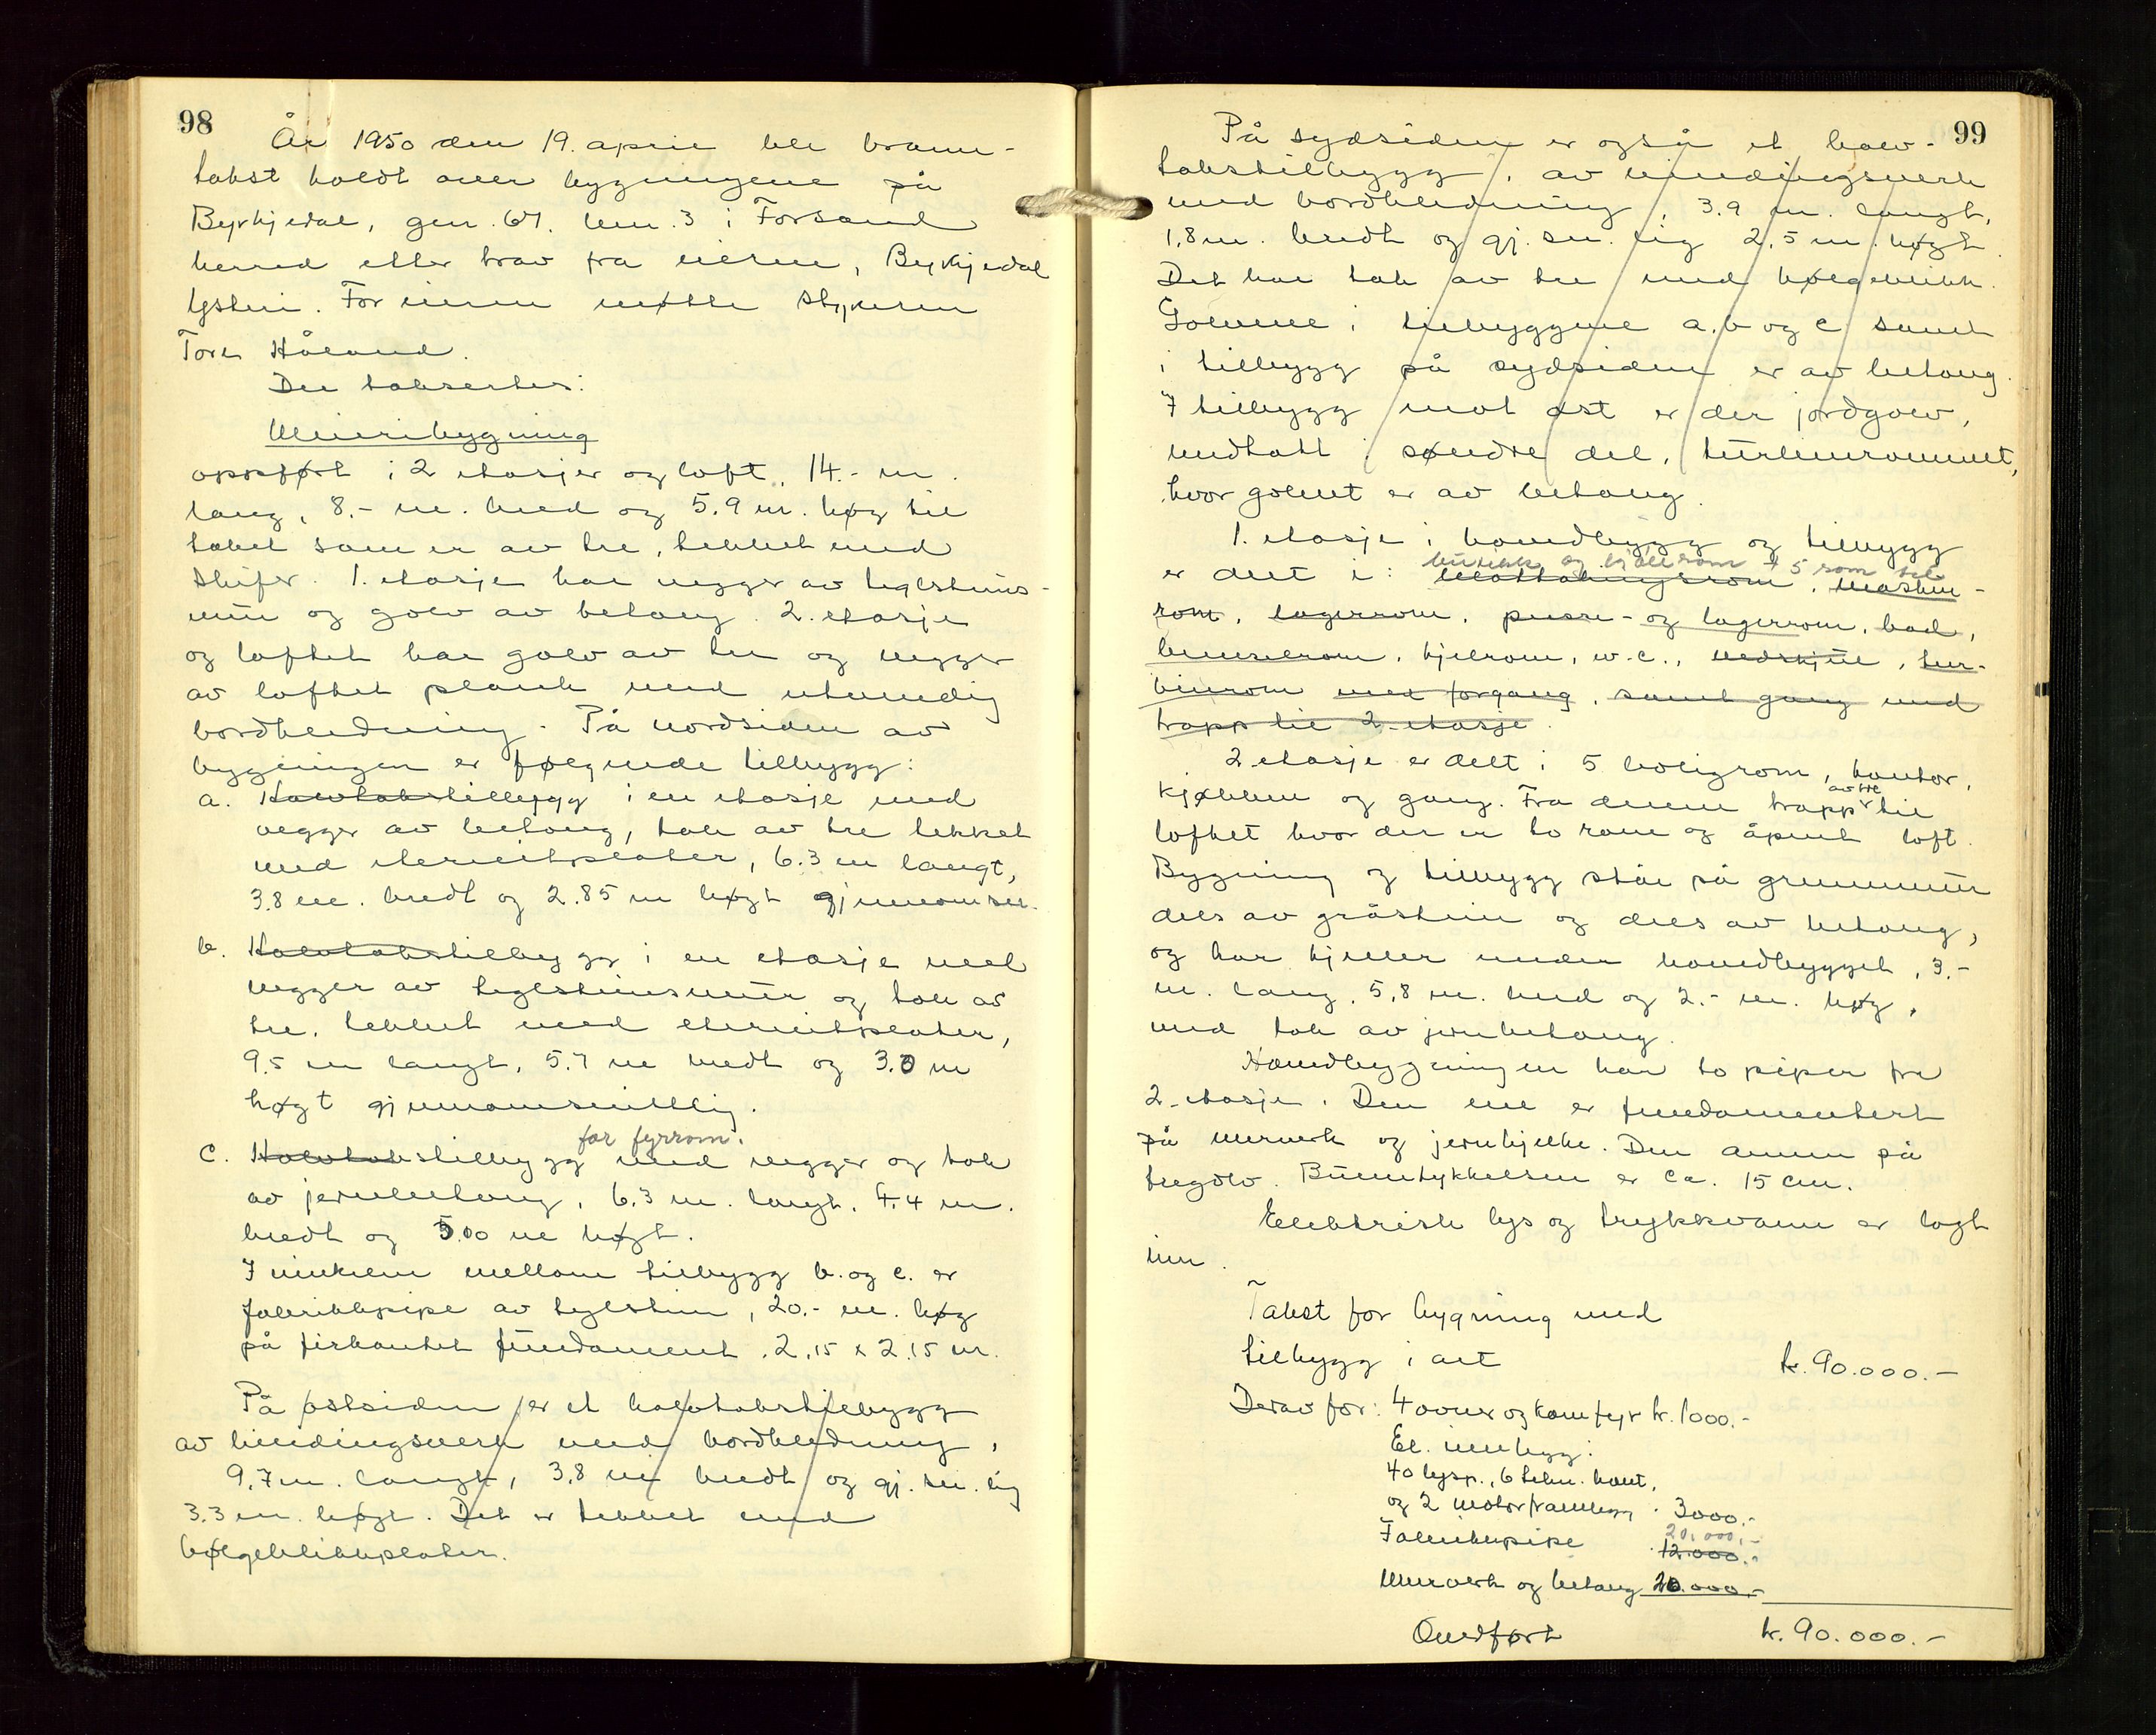 98
År 1950 den 19. april ble brann-
takst holdt over bygningene på
Byrkjedal, gnr. 67. bnr. 3 i Forsand
herred etter krav fra eieren, Byrkjedal
Ysteri. For eieren møtte styreren
Tore Håland.
Der taksertes:
Meieribygning
oppført i 2 etasjer og loft, 14.- m.
lang, 8.- m. bred og 5.9 m. høg til
taket som er av tre, tekket med
skifer. 1. etasje har vegger av teglsteins-
mur og golv av betong. 2. etasje
og loftet har golv av tre og vegger
av loftet plank med utvendig
bordkledning. På nordsiden av
bygningen er følgende tilbygg:
a. Halvtakstilbygg i en etasje med
vegger av betong, tak av tre tekket
med eternitplater, 6.3 m langt,
3.8 m. bredt og 2.85 m høgt gjennomsn.
b. Halvtakstilbygg i en etasje med
vegger av teglsteinsmur og tak av
tre, tekket med eternitplater,
9.5 m langt, 5.7 m bredt og 3.0 m
høgt gjennomsnittlig.
for fyrrom.
c. Halvtakstilbygg med vegger og tak
av jernbetong, 6.3 m. langt, 4.4 m.
bredt og 5.00 m høgt.
I vinkelen mellom tilbygg b. og c. er
fabrikkpipe av teglstein, 20.- m. høg
på firkantet fundament, 2.15 x 2.15 m.
På østsiden er et halvtakstilbygg
av bindingsverk med bordkledning,
9.7 m. langt, 3.8 m bredt og gj. sn. lig
3.3 m. høgt. Det er tekket med
bølgeblikkplater.
99
På sydsiden er også et halv-
takstilbygg, av bindingsverk
med bordkledning, 3.9 m. langt,
1.8 m. bredt og gj. sn. lig 2.5 m. høgt.
Det har tak av tre med bølgeblikk.
Golvene i tilbyggene a, b og c samt
i tilbygg på sydsiden er av betong.
I tilbygg mot øst er der jordgolv,
undtatt i søndre del, turbinrommet,
hvor golvet er av betong.
1. etasje i hovedbygg og tilbygg
butikk og kjølerom + 5 rom til
er delt i: Mottakingsrom, maskin-
rom, lagerrom, presse- og lagerrom, bad,
brenselrom, kjelrom, w.c., vedskjul, tur-
binrom med forgang, samt gang med
trapp til 2. etasje.
2. etasje er delt i 5 boligrom, kontor,
kjøkken og gang. Fra denne trapp av tre til
loftet hvor der er to rom og åpent loft.
Bygning og tilbygg står på grunnmur
dels av gråstein og dels av betong,
og har kjeller under hovedbygget, 3.-
m. lang, 5,8 m. bred og 2.- m. høg,
med tak av jernbetong.
Hovedbygningen har to piper fra
2. etasje. Den ene er fundamentert
på murverk og jernbjelke. Den annen på
tregolv. Bunntykkelsen er ca. 15 cm.
Elektrisk lys og trykkvann er lagt
inn.
Takst for bygning med
tilbygg i alt kr. 90.000.-
Derav for: 4 ovner og komfyr kr. 1000.-
El. innlegg:
40 lysp., 6 tekn. kont,
og 2 motorframlegg . 3000.-
20.000.-
Fabrikkpipe . 12.000.-
Murverk og betong 20.000.-
Overført kr. 90.000.-